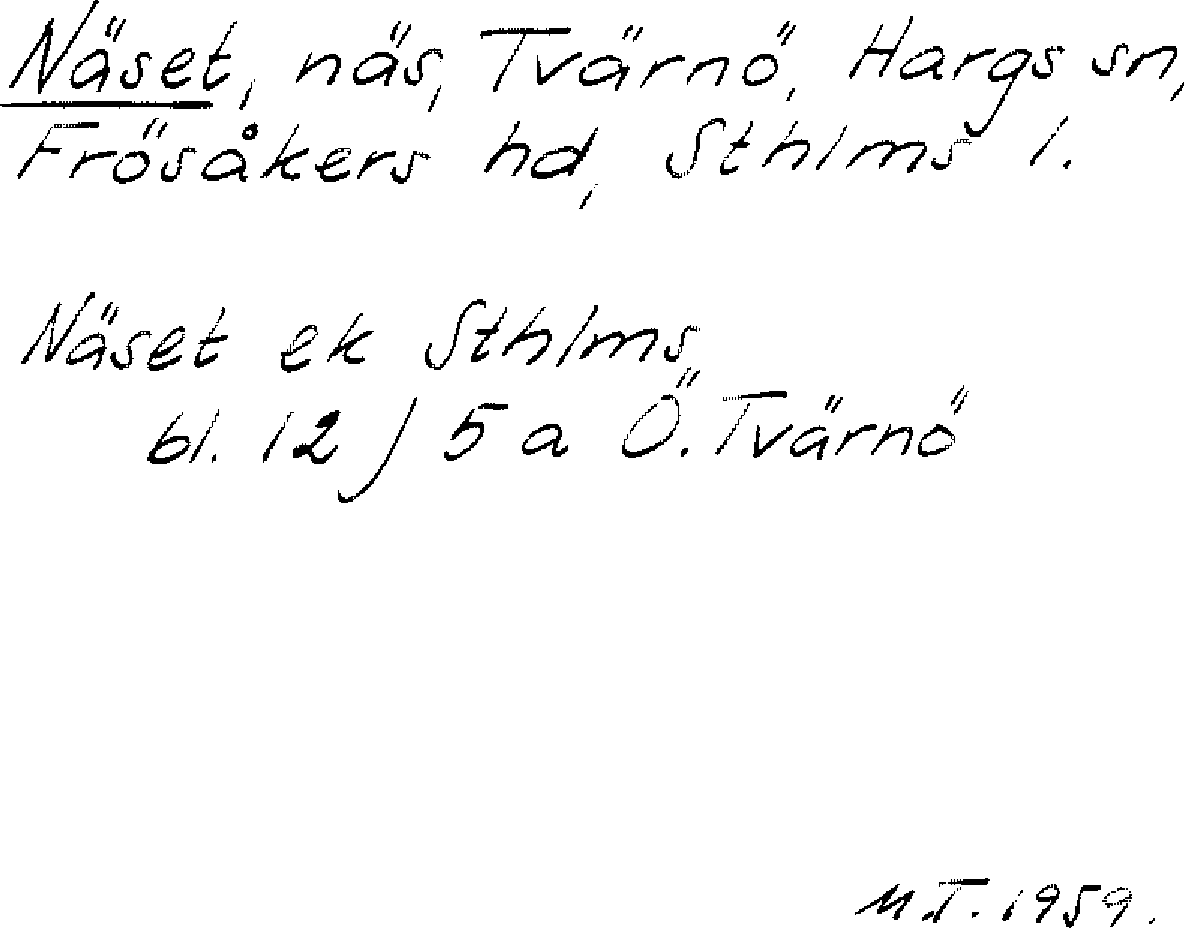 Näset, näs, Tvärnö, Hargs sn,
Frösåkers hd, Sthlms l.
Näset ek Sthlms
bl. 12 J 5 a Ö. Tvärnö
M.T. 1959.